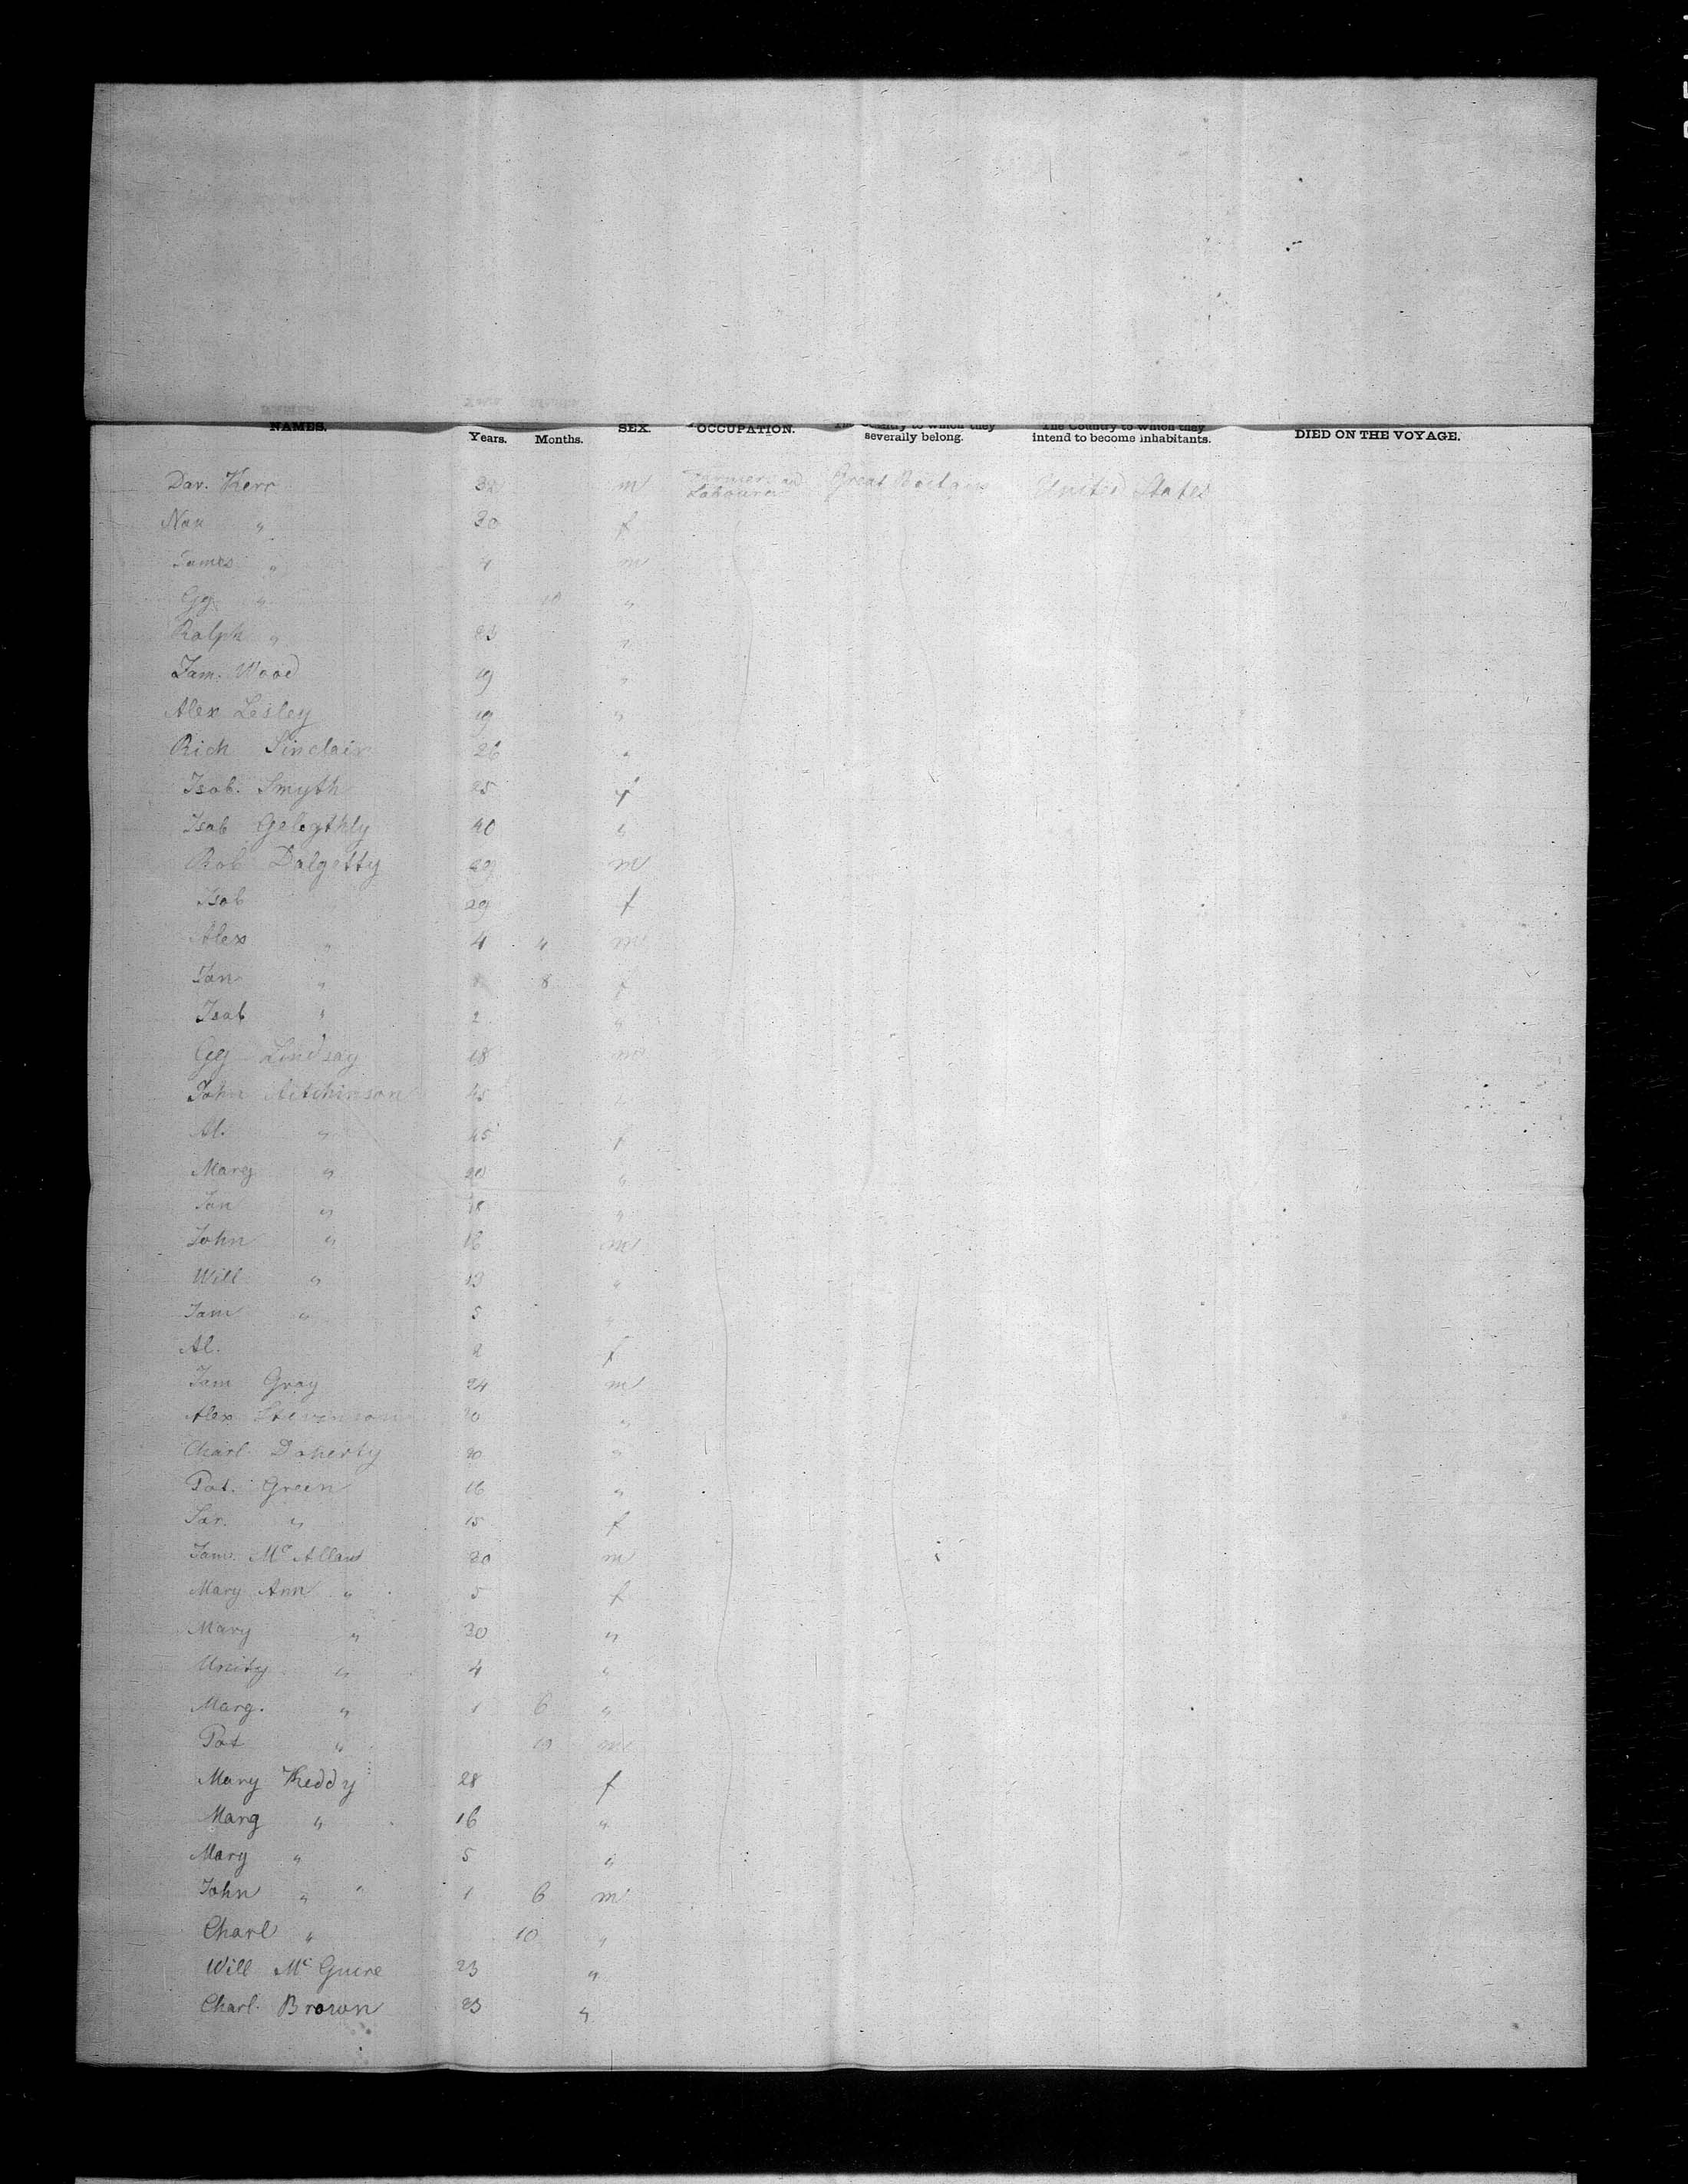 NAMES. Years. Months. SEX. OCCUPATION. The Country to which they severally belong. The Country to which they intend to become inhabitants. DIED ON THE VOYAGE.
Dav. Kerr 32 m Farmers and Labourers Great Britain United States
Nan " 30 f
James " 4 m
Gg " 10 "
Ralph " 23 "
Jam. Wood 19 "
Alex Lesley 19 "
Rich Sinclair 26 "
Isob. Smyth 25 f
Isab 40 "
Rob Dalgetty 29 m
Isob " 29 f
Alex " 4 " m
Jan " 8 f
Isab " 2 "
Gg Lindsay 18 m
John Aitchinson 45 "
Al. " 45 f
Marg " 20 "
Jan " 18 "
John " 16 m
Will " 13 "
Jam " 5 "
Al. 2 f
Jam Gray 24 m
Alex Stevenson 20 "
Charl. Doherty 20 "
Pat. Green 16 "
Sar. " 15 f
Jam. Mc Allan 30 m
Mary Ann " 5 f
Mary " 30 "
Unity " 4 "
Marg. " 1 6 "
Pat " 10 m
Mary Keddy 28 f
Marg " 16 "
Mary " 5 "
John " " 1 6 m
Charl " 10 "
Will Mc Guire 23 "
Charl. Brown 23 "